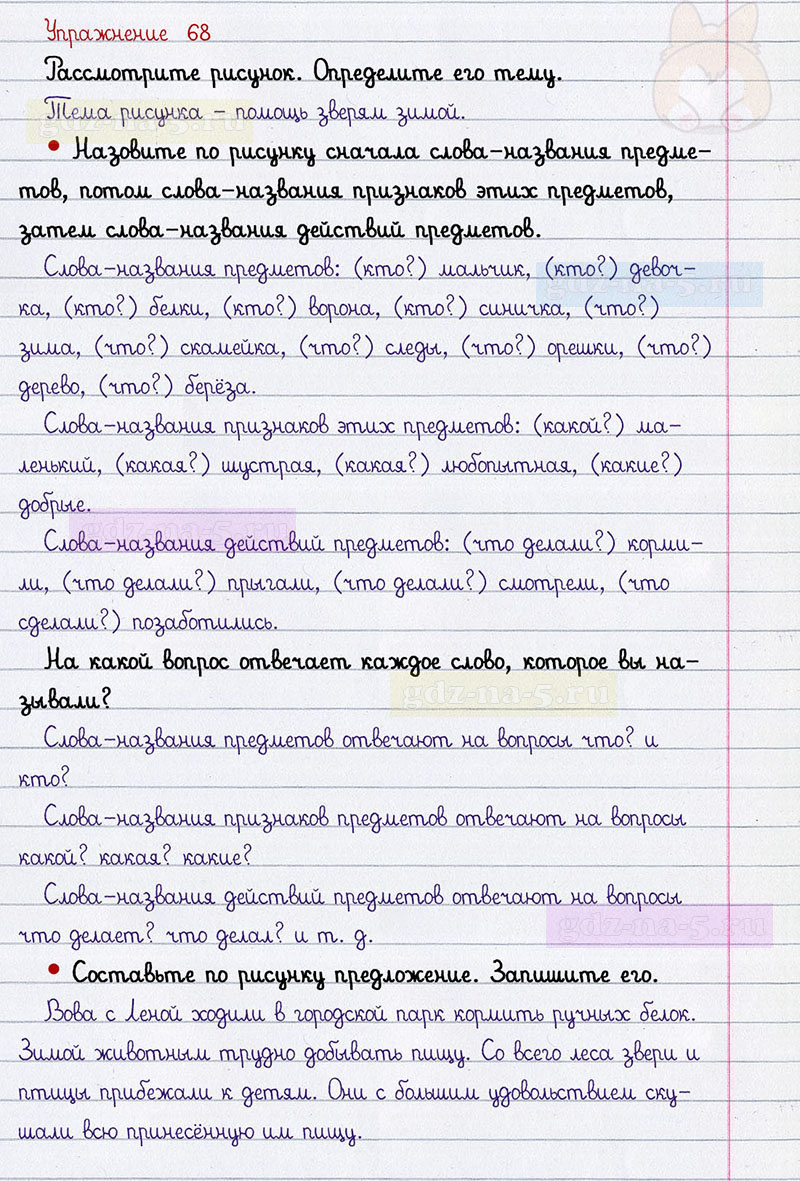 Упражнение 68
Рассмотрите рисунок. Определите его тему.
Тема рисунка – помощь зверям зимой.
gdz-na-5.ru
• Назовите по рисунку сначала слова-названия предме-
тов, потом слова-названия признаков этих предметов,
затем слова-названия действий предметов.
Слова-названия предметов: (кто?) мальчик, (кто?) девоч-
gdz-na-5.ru
ка, (кто?) белки, (кто?) ворона, (кто?) синичка, (что?)
зима, (что?) скамейка, (что?) следы, (что?) орешки, (что?)
дерево, (что?) берёза.
Слова-названия признаков этих предметов: (какой?) ма-
ленький, (какая?) шустрая, (какая?) любопытная, (какие?)
добрые.
gdz-na-5.ru
Слова-названия действий предметов: (что делали?) корми-
ли, (что делали?) прыгали, (что делали?) смотрели, (что
сделали?) позаботились.
На какой вопрос отвечает каждое слово, которое вы на-
зывали?
gdz-na-5.ru
Слова-названия предметов отвечают на вопросы что? и
кто?
Слова-названия признаков предметов отвечают на вопросы
какой? какая? какие?
Слова-названия действий предметов отвечают на вопросы
что делает? что делал? и т. д.
gdz-na-5.ru
• Составьте по рисунку предложение. Запишите его.
Вова с Леной ходили в городской парк кормить ручных белок.
Зимой животным трудно добывать пищу. Со всего леса звери и
птицы прибежали к детям. Они с большим удовольствием ску-
шали всю принесённую им пищу.